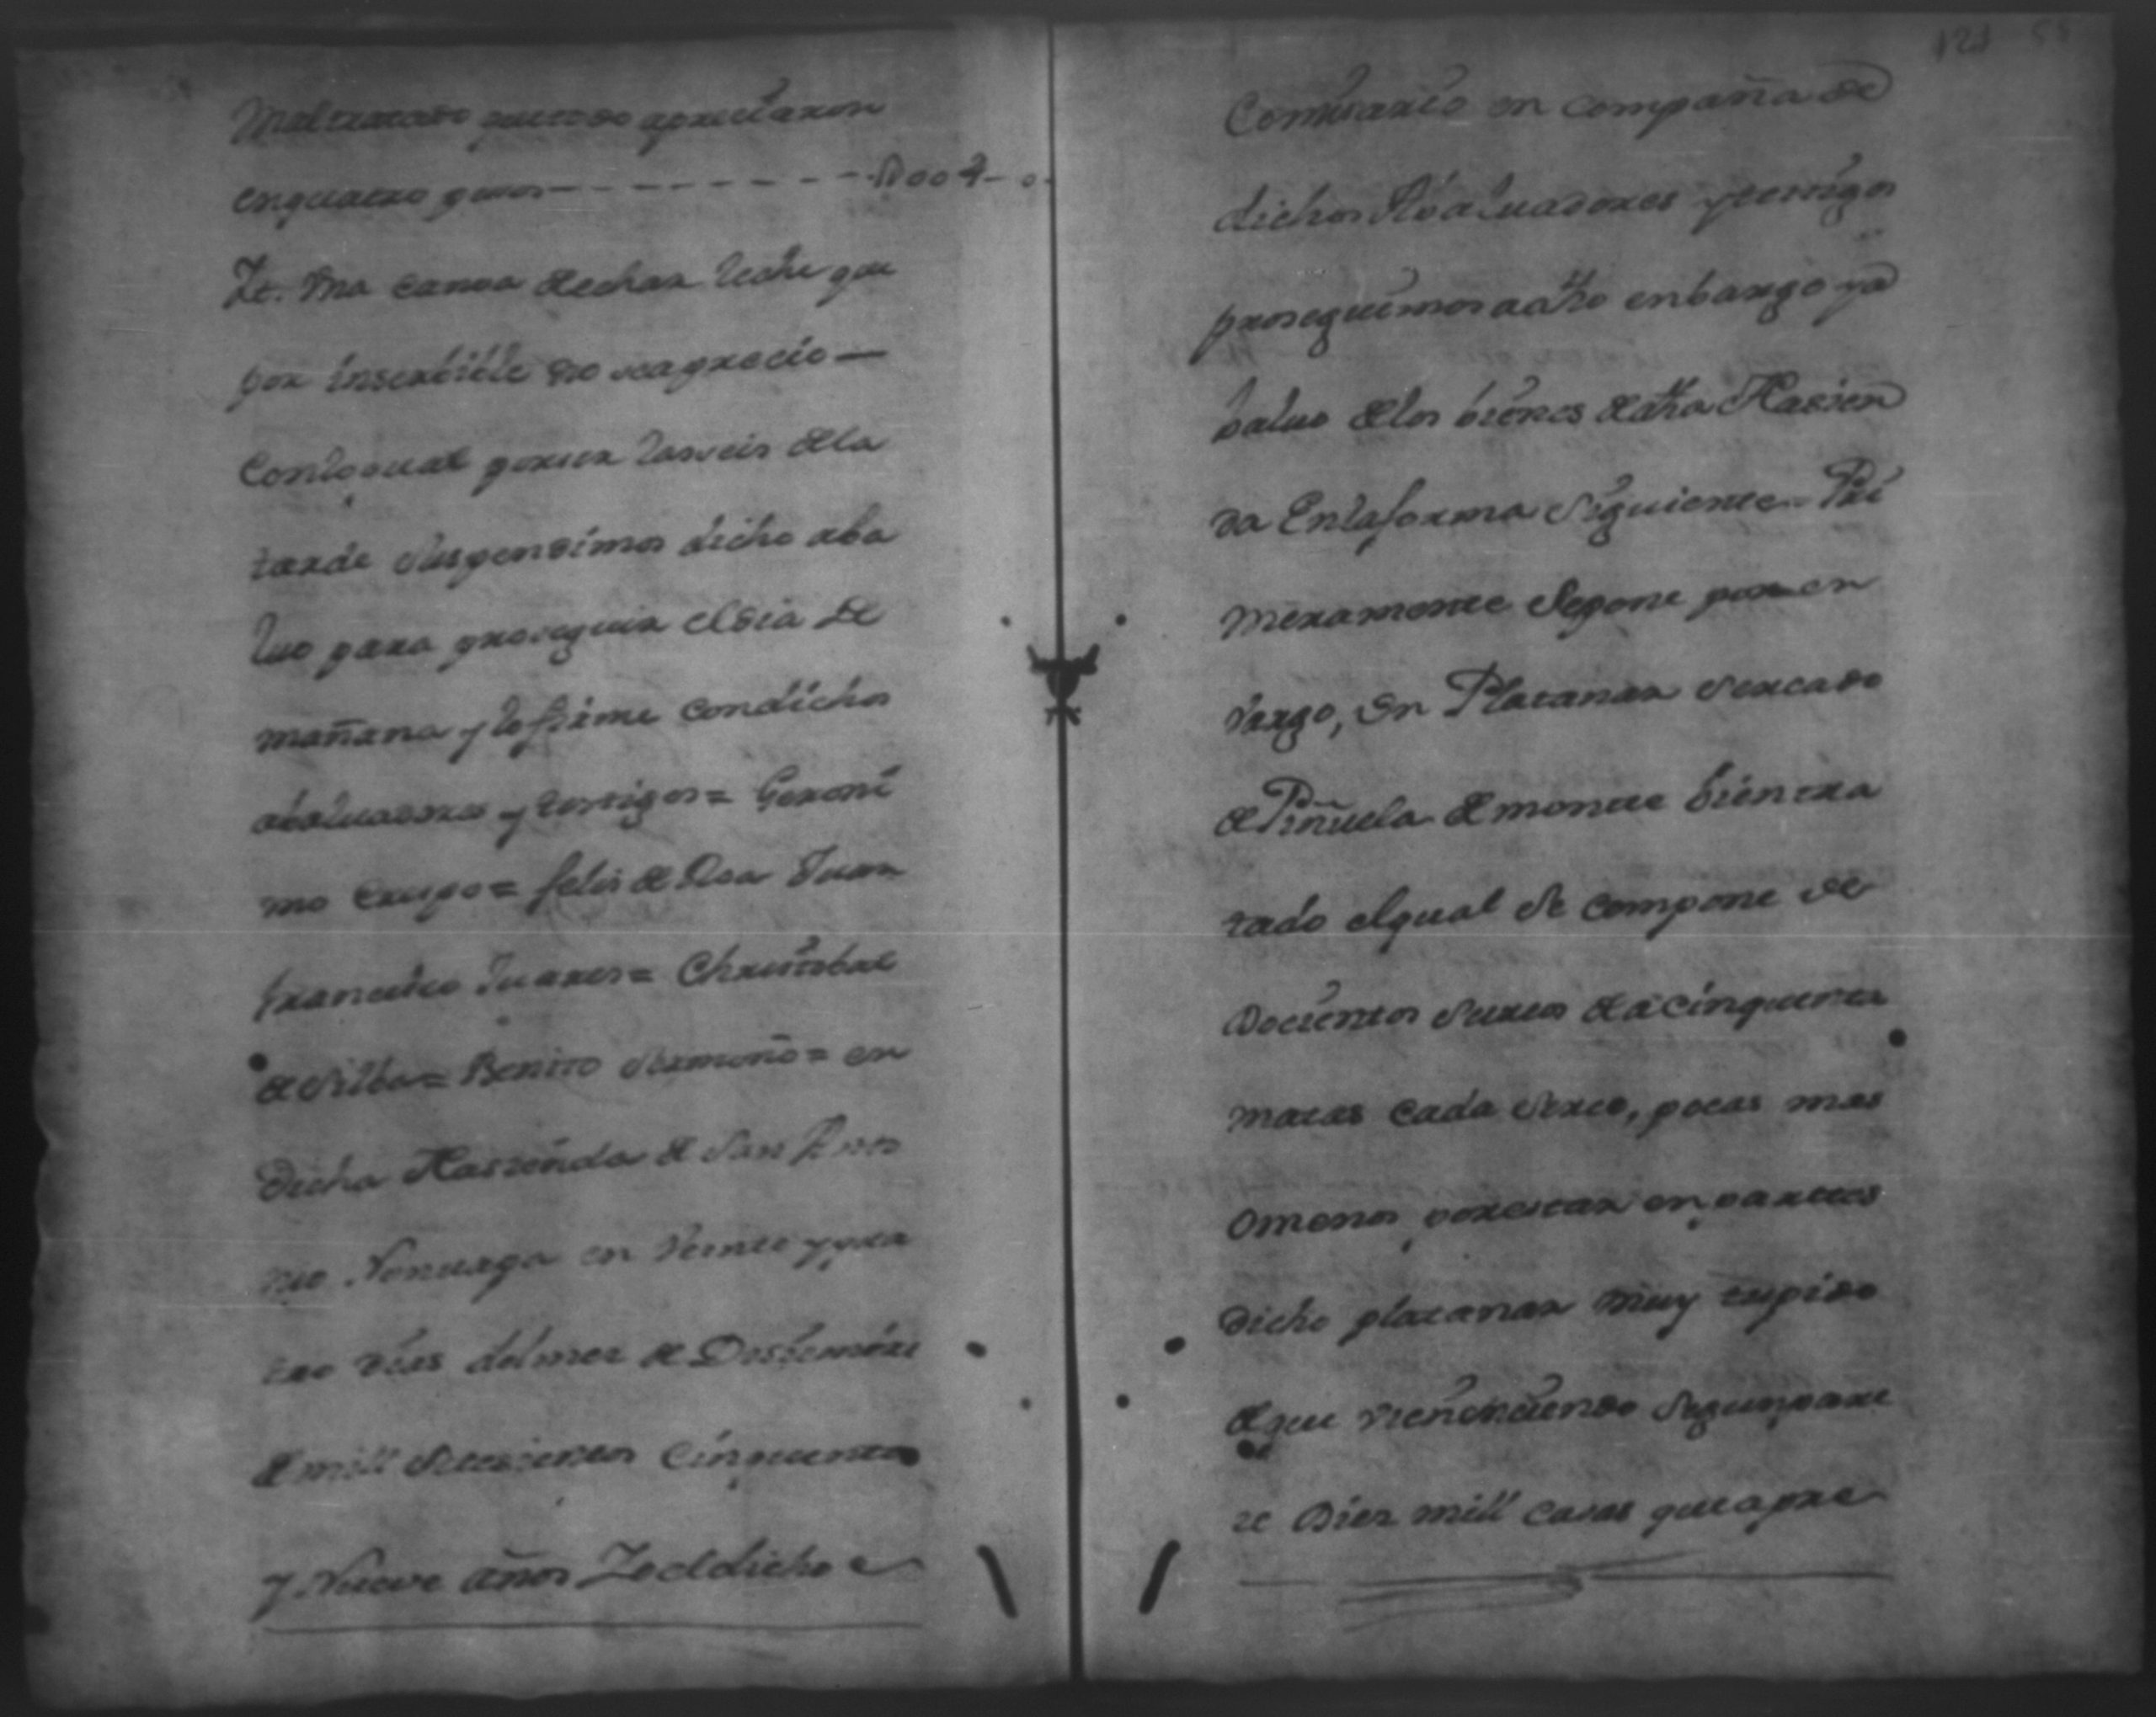 Maltratado que todo apreciaron
en quatro pesos - - - - - - - - - - U004 - 0.
Yt. Una canoa de echar leche que
por inserbible no se apreció —
Con lo qual por ser las seis de la
tarde suspendimos dicho aba
luo para proseguir el dia de
mañana y lo firme con dichos
abaluadores y testigos = Geroni
mo Crespo = felis de Roa Juan
francisco Juares = Christobal
de Silba = Benito Sermeño = en
dicha Hasienda de San Anto
nio Nonuapa en Veinte y qua
tro días del mes de Desiembre
de mill Setesientos Cinquenta
y Nueve años Yo el dicho
121 55
Comisario en compaña de
dichos Abaluadores y testigos
proseguimos a dho enbargo y a
baluo de los bienes de dha Hasien
da En la forma Siguiente = Pri
meramente Se pone por en
bargo, Un Platanar Sercado
de Piñuela de monte bien tra
tado el qual Se compone de
Docientos Surcos de a cinquenta
matas cada Surco, pocas mas
o menos por estar en partes
dicho platanar muy tupido
de que Viene siendo Segun pare
ce Diez mill casas que apre